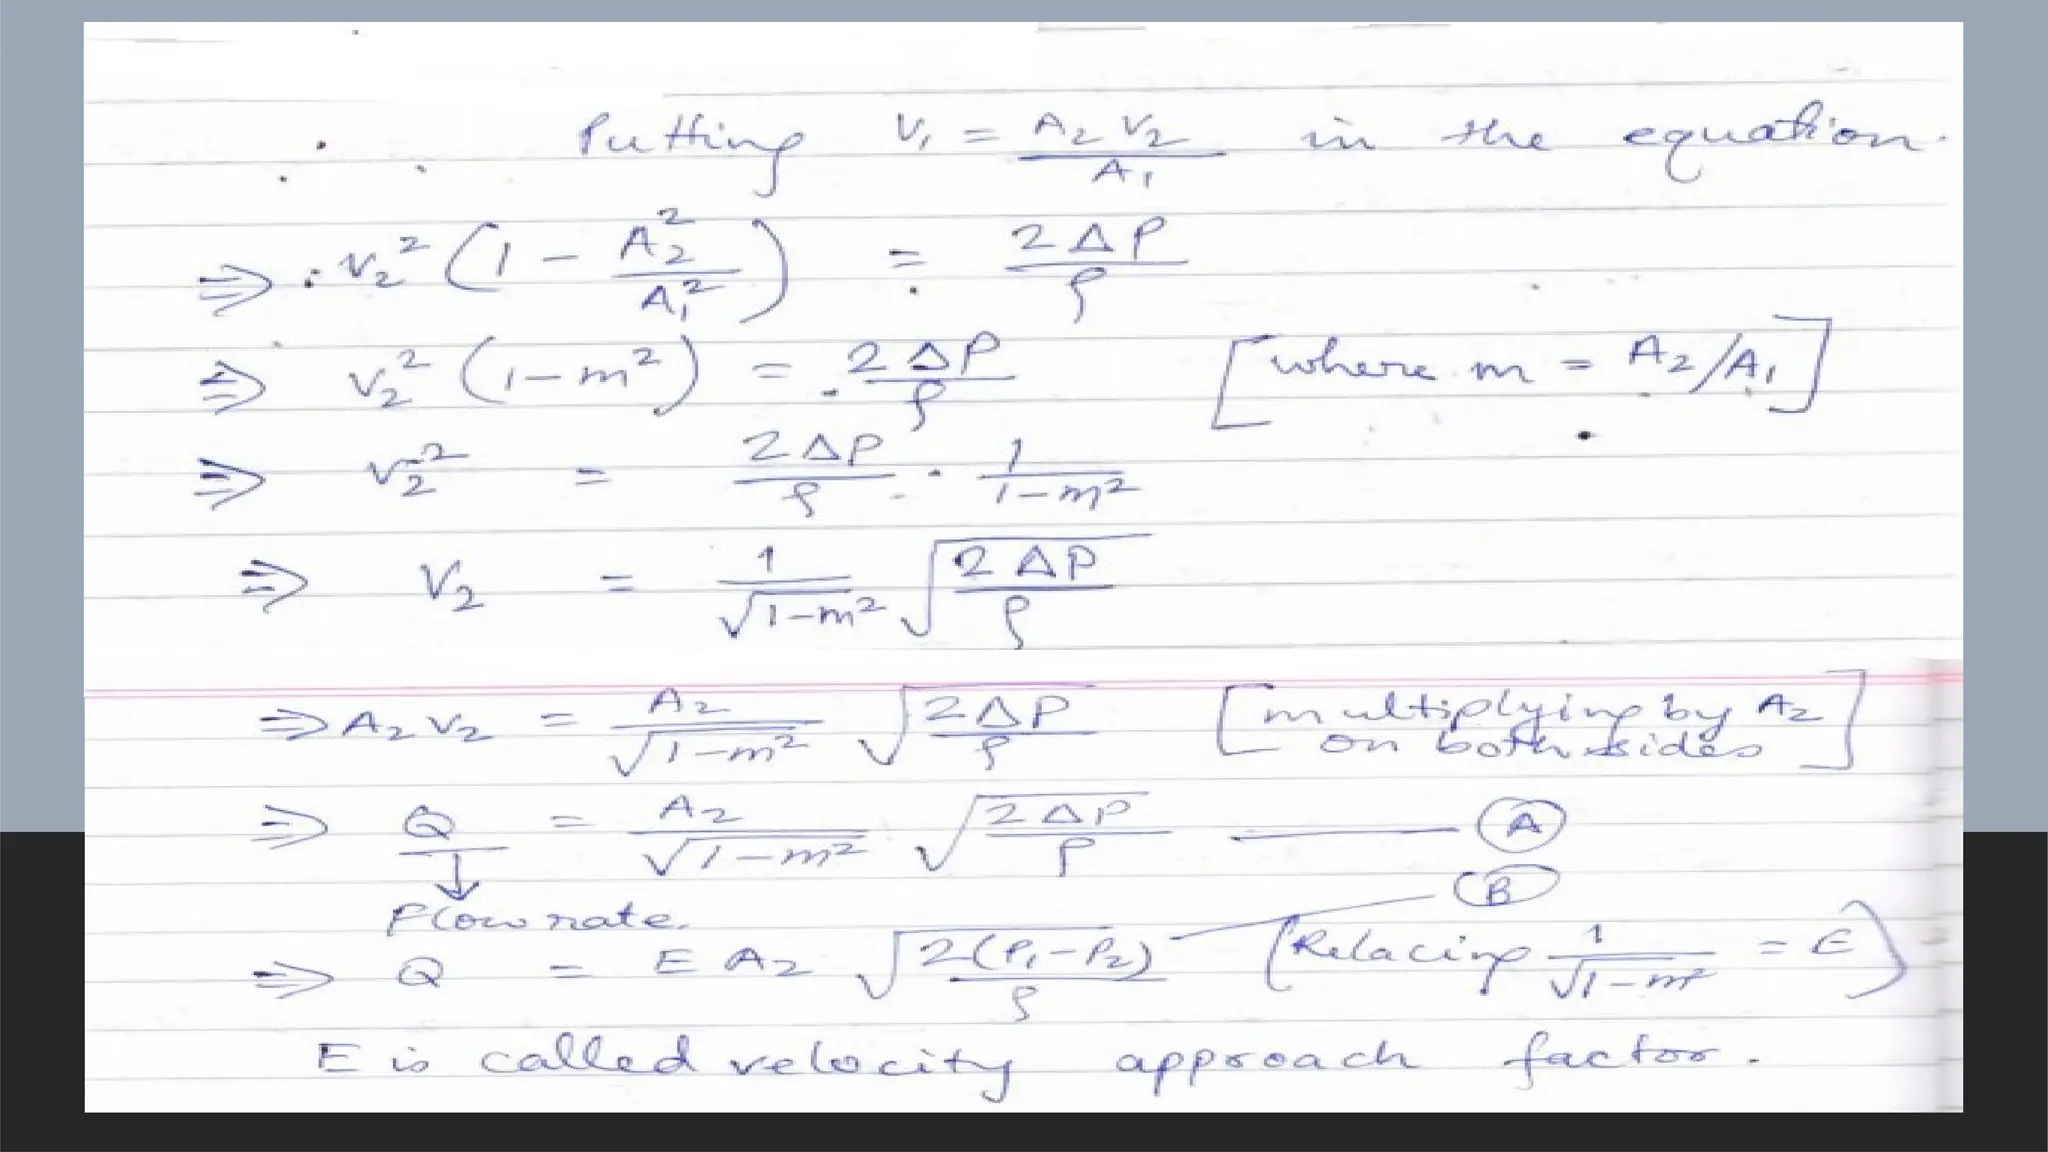 Putting V₁ = A₂V₂/A₁ in the equation.
⇒ V₂² (1 - A₂²/A₁²) = 2ΔP/ρ
⇒ V₂² (1-m²) = 2ΔP/ρ [where m = A₂/A₁]
⇒ V₂² = 2ΔP/ρ · 1/(1-m²)
⇒ V₂ = 1/√(1-m²) √(2ΔP/ρ)
⇒ A₂V₂ = A₂/√(1-m²) √(2ΔP/ρ) [multiplying by A₂
on both sides]
⇒ Q = A₂/√(1-m²) √(2ΔP/ρ) — A
↓
Flow rate.
B
⇒ Q = E A₂ √(2(P₁-P₂)/ρ) (Relacing 1/√(1-m²) = E)
E is called velocity approach factor.